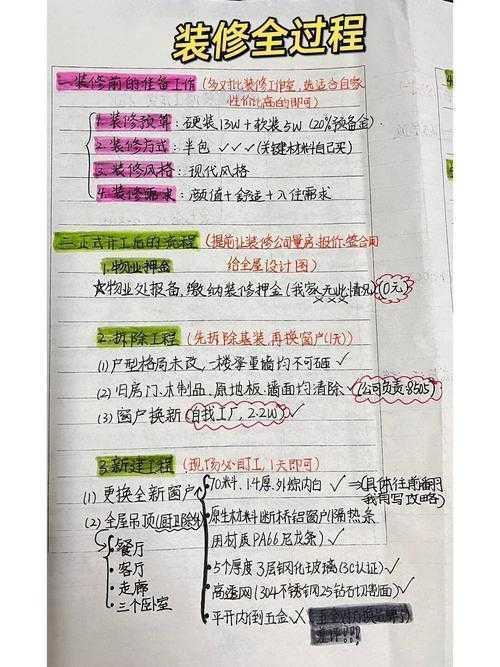 装修全过程
一.装修前的准备工作(多对比装修工作室,选适合自家
性价比高的即可)
1.装修预算:硬装13W+软装5W(20%预备金)
2.装修方式:半包 ✓✓✓(关键材料自己买)
3.装修风格:现代风格
4.装修需求:颜值+舒适+入住需求
二.正式开工后的流程(提前让装修公司量房、报价、签合同
给全屋设计图)
1.物业押金
☆物业处报备、缴纳装修押金(我家无此情况)(0元)
2.拆除工程(先拆除基装,再换窗户(1天))
(1)户型格局未改,一楼承重墙均不可砸✓
(2)旧房门、木制品、原地板、墙面均清除✓(公司负责:8505)
(3)窗户换新(自找工厂,2.2W)✓
3.新建工程(现场处理,1天即可)
(1)更换全新窗户
70料、1.4厚、外棕内白✓⇒(具体往前翻
我有写攻略)
(2)全屋吊顶(厨卫除外)
原生材料断桥铝窗户(隔热条
·餐厅
用材质PA66尼龙条)✓
·客厅
5个厚度3层钢化玻璃(3C认证)✓
·走廊
高透网(304不锈钢25钻石切割面)✓
·三个卧室
平开内倒五金✓